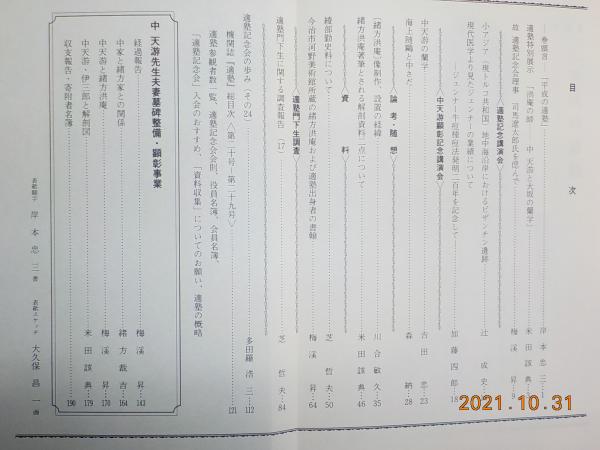 目　次
―巻頭言―「平成の適塾」……岸本忠三…1
適塾特別展示「洪庵の師　中天游と大坂の蘭学」……米田該典…
故　適塾記念会理事　司馬遼太郎氏を偲んで……梅溪　昇…9
＜適塾記念講演会＞
小アジア（現トルコ共和国）地中海沿岸におけるビザンチン遺跡……辻　成史…
現代医学より見たジェンナーの業績について
―ジェンナー牛痘種痘法発明二百年を記念して―……加藤四郎…18
＜中天游顕彰記念講演会＞
中天游の蘭学……吉田　忠…23
海上随鷗と中さだ……森　納…28
＜論考・随想＞
〈緒方洪庵〉像制作、設置の経緯……川合敏久…35
緒方洪庵著筆とされる解剖資料二点について……米田該典…46
＜資　料＞
綾部勤史料について……芝　哲夫…50
今治市河野美術館所蔵の緒方洪庵および適塾出身者の書翰……梅溪　昇…64
＜適塾門下生調査＞
適塾門下生に関する調査報告（17）……芝　哲夫…84
適塾記念会の歩み（その24）……多田羅浩三…112
機関誌『適塾』総目次＜第二十号　第二十九号＞……121
適塾参観者数一覧、適塾記念会会則、役員名簿、会員名簿、
「適塾記念会」入会のおすすめ、「資料収集」についてのお願い、適塾の概略
中　天游先生夫妻墓碑整備・顕彰事業
経過報告……梅溪　昇…143
中家と緒方家との関係……緒方裁吉…164
中天游と緒方洪庵……梅溪　昇…170
中天游・伊三郎と解剖図……米田該典…179
収支報告・寄附者名簿……190
表紙題字　岸本忠三書　表紙スケッチ　大久保昌一画
2021.10.31